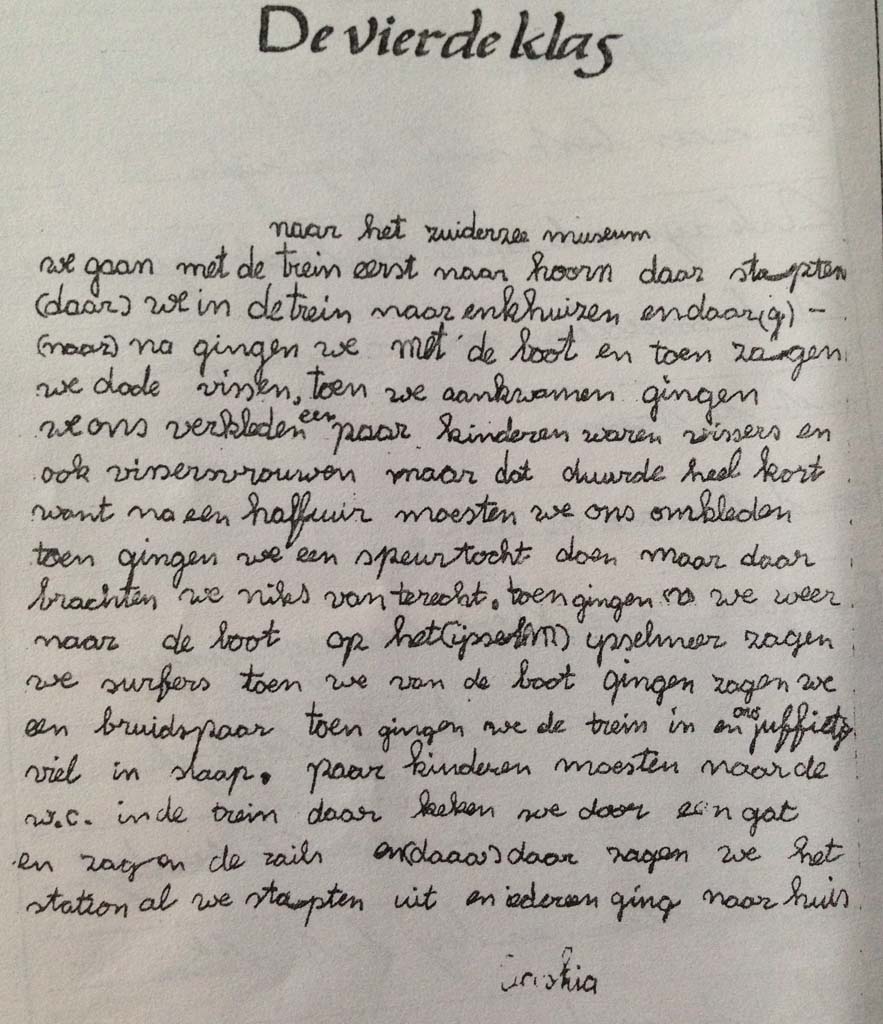 De vierde klas
naar het zuiderzee museum
we gaan met de trein eerst naar hoorn daar stapten
(daar) we in de trein naar enkhuizen en daar (g) -
(naar) na gingen we met de boot en toen zagen
we dode vissen, toen we aankwamen gingen
we ons verkleden een paar kinderen waren vissers en
ook vissersvrouwen maar dat duurde heel kort
want na een halfuur moesten we ons omkleden
toen gingen we een speurtocht doen maar daar
brachten we niks van terecht. toen gingen we weer
naar de boot op het (ijsselM) ijsselmeer zagen
we surfers toen we van de boot gingen zagen we
een bruidspaar toen gingen we de trein in en ons juffie
viel in slaap. paar kinderen moesten naar de
w.c. in de trein daar keken we door een gat
en zagen de rails en (daaar) daar zagen we het
station al we stapten uit en iedereen ging naar huis